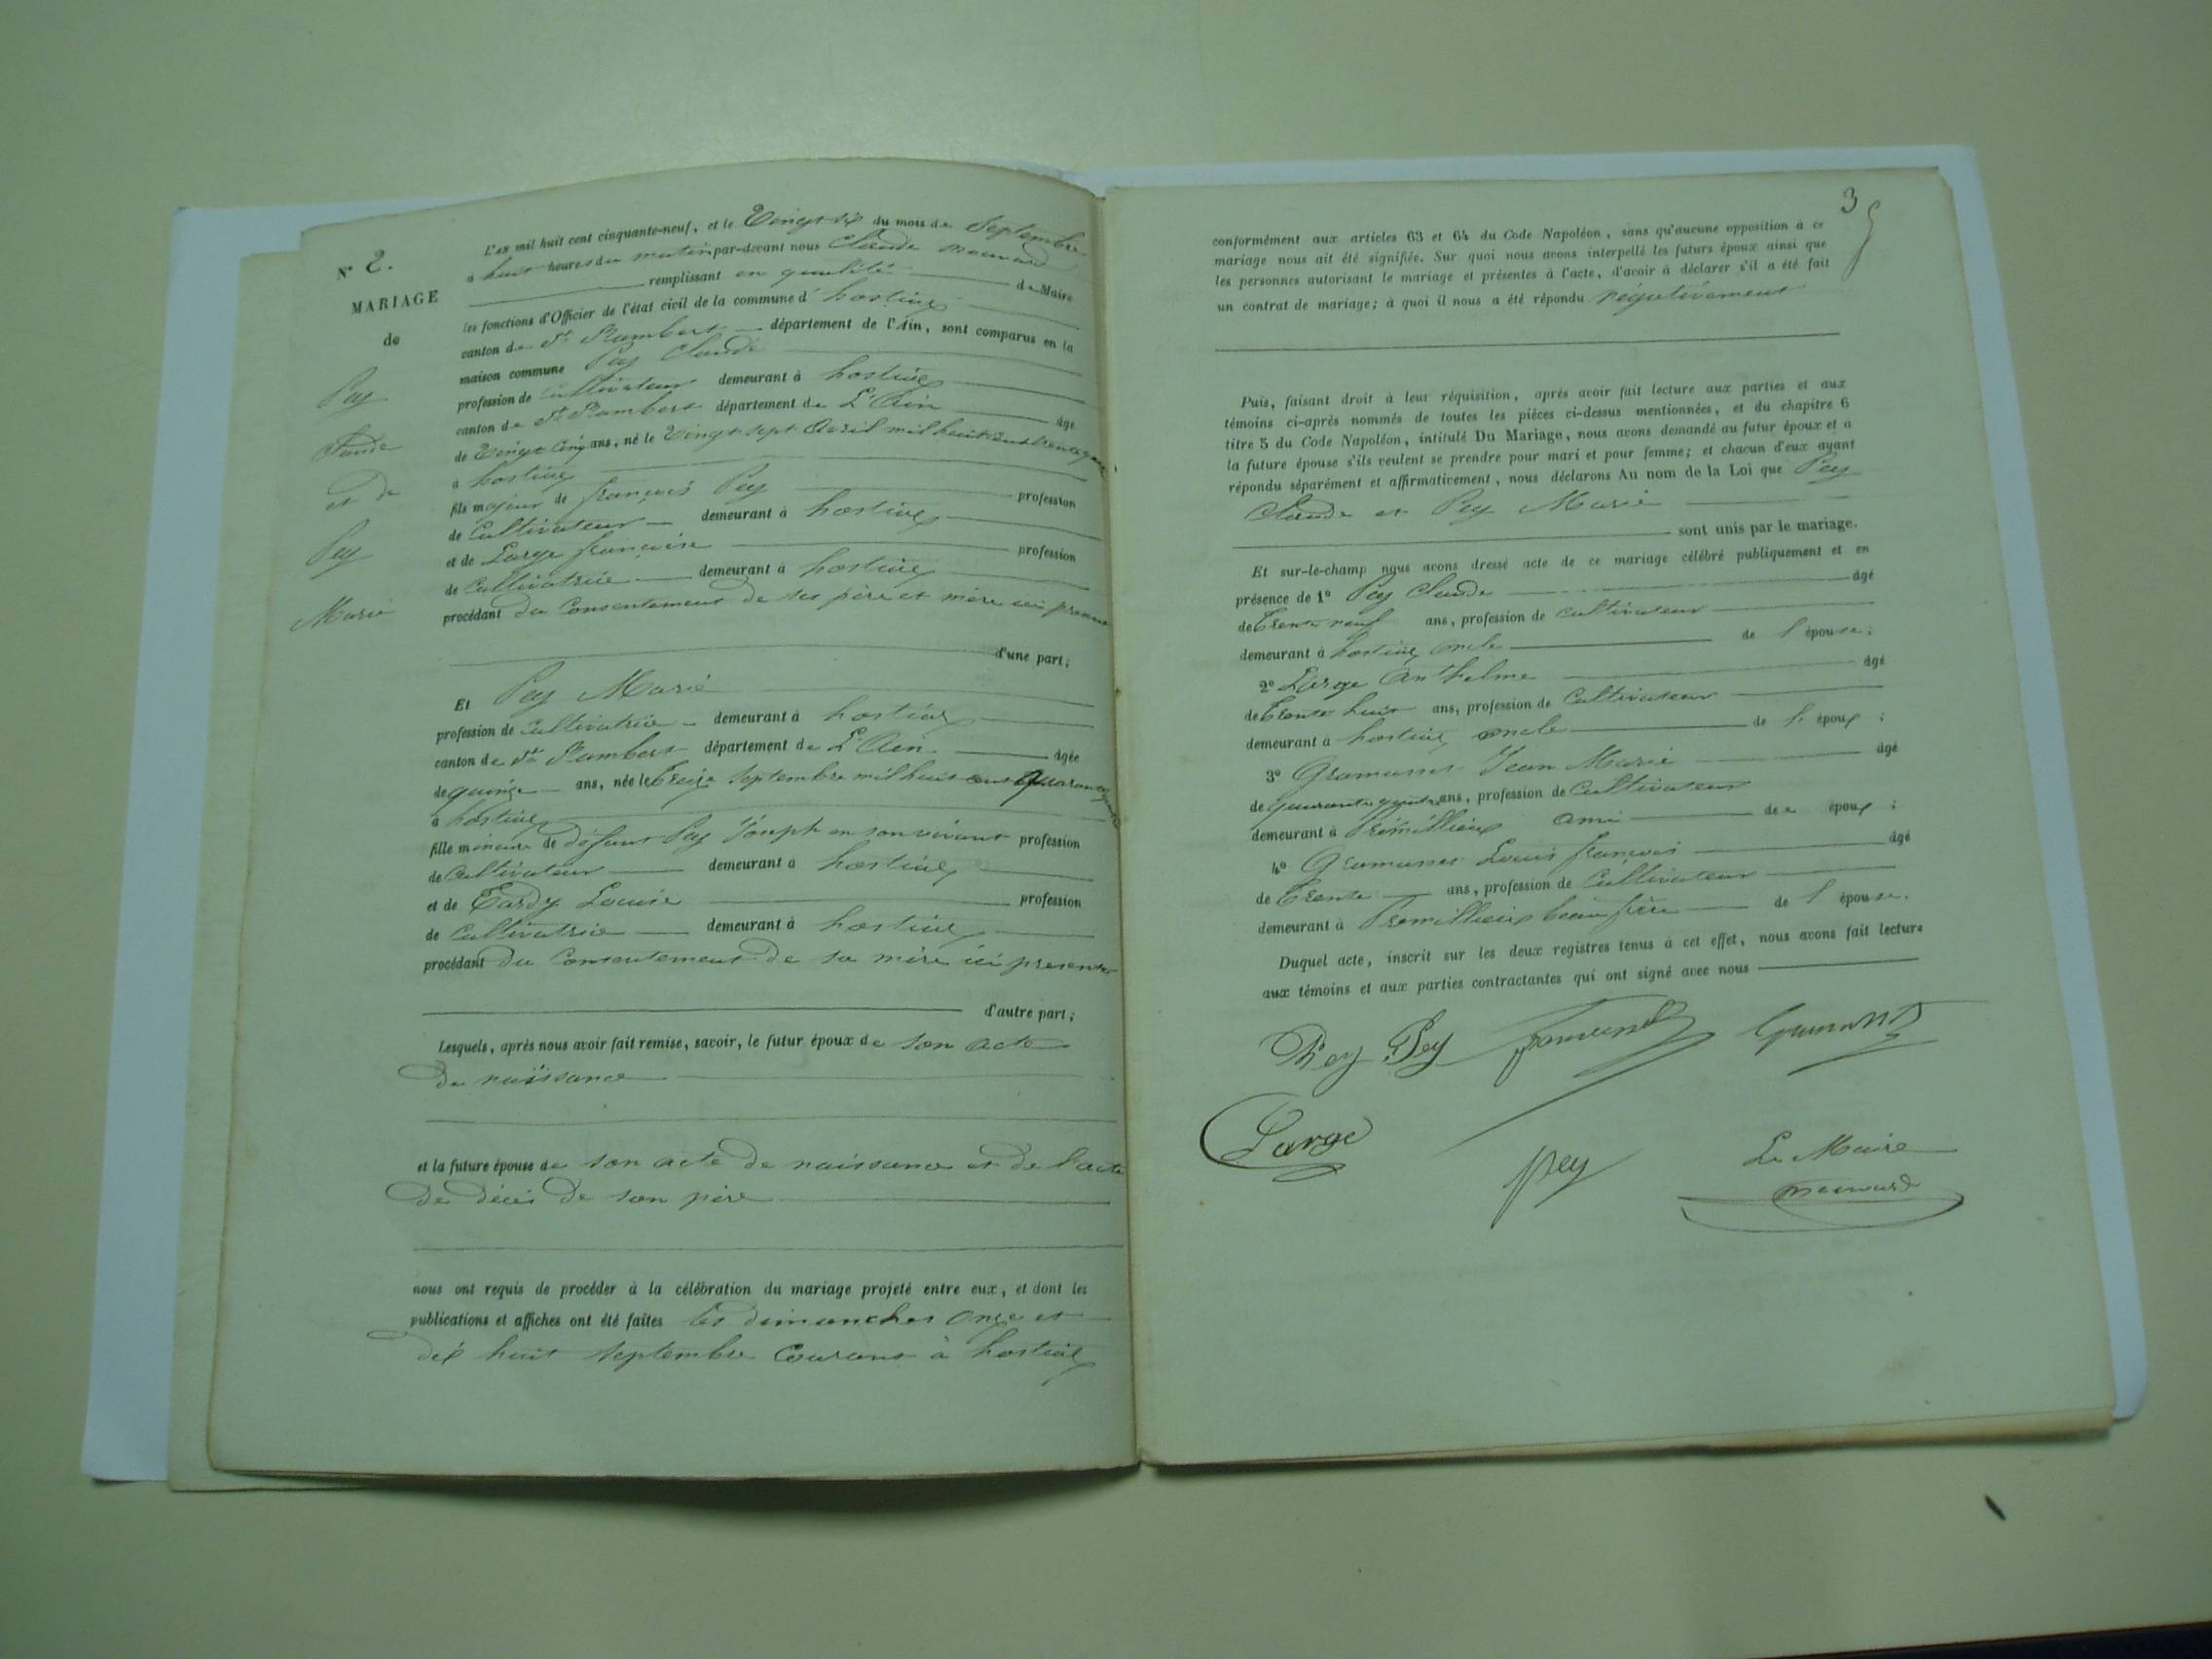 N° 2.
MARIAGE
de
Pey
Claude
et de
Pey
Marie
L'an mil huit cent cinquante-neuf, et le Vingt-six du mois de Septembre
à huit heures du matin par-devant nous Claude
remplissant en qualité de Maire
les fonctions d'Officier de l'état civil de la commune d' hostiaz
canton de St Rambert département de l'Ain, sont comparus en la
maison commune Pey Claude
profession de cultivateur demeurant à hostiaz
canton de St Rambert département de L'Ain âgé
de Vingt Cinq ans, né le Vingt sept Avril mil huit cent trente quatre
à hostiaz
fils majeur de françois Pey profession
de Cultivateur demeurant à hostiaz
et de Large françoise profession
de Cultivatrice demeurant à hostiaz
procédant du Consentement de ses père et mère ici présents
d'une part;
Et Pey Marie
profession de cultivatrice demeurant à hostiaz
canton de St Rambert département de L'Ain âgée
de quinze ans, née le treize Septembre mil huit cent quarante quatre
à hostiaz
fille mineure de défunt Pey Joseph en son vivant profession
de Cultivateur demeurant à hostiaz
et de Tardy Louise profession
de Cultivatrice demeurant à hostiaz
procédant du Consentement de sa mère ici présente
d'autre part;
Lesquels, après nous avoir fait remise, savoir, le futur époux de son acte
de naissance
et la future épouse de son acte de naissance et de l'acte
de décès de son père
nous ont requis de procéder à la célébration du mariage projeté entre eux, et dont les
publications et affiches ont été faites les dimanches onze et
dix huit Septembre Courant à hostiaz
3
conformément aux articles 63 et 64 du Code Napoléon, sans qu'aucune opposition à ce
mariage nous ait été signifiée. Sur quoi nous avons interpellé les futurs époux ainsi que
les personnes autorisant le mariage et présentes à l'acte, d'avoir à déclarer s'il a été fait
un contrat de mariage; à quoi il nous a été répondu négativement
Puis, faisant droit à leur réquisition, après avoir fait lecture aux parties et aux
témoins ci-après nommés de toutes les pièces ci-dessus mentionnées, et du chapitre 6
titre 5 du Code Napoléon, intitulé Du Mariage, nous avons demandé au futur époux et à
la future épouse s'ils veulent se prendre pour mari et pour femme; et chacun d'eux ayant
répondu séparément et affirmativement, nous déclarons Au nom de la Loi que Pey
Claude et Pey Marie
sont unis par le mariage.
Et sur-le-champ nous avons dressé acte de ce mariage célébré publiquement et en
présence de 1° Pey Claude âgé
de trente neuf ans, profession de cultivateur
demeurant à hostiaz oncle de l'épouse;
2° Large Anthelme âgé
de trente huit ans, profession de Cultivateur
demeurant à hostiaz oncle de l'époux;
3° Gramusset Jean Marie âgé
de quarante quatre ans, profession de Cultivateur
demeurant à Prémillieu ami des époux;
4° Gramusset Louis françois âgé
de trente ans, profession de Cultivateur
demeurant à Premillieu beau frère de l'épouse.
Duquel acte, inscrit sur les deux registres tenus à cet effet, nous avons fait lecture
aux témoins et aux parties contractantes qui ont signé avec nous
Pey Pey
Large
Pey
Le Maire